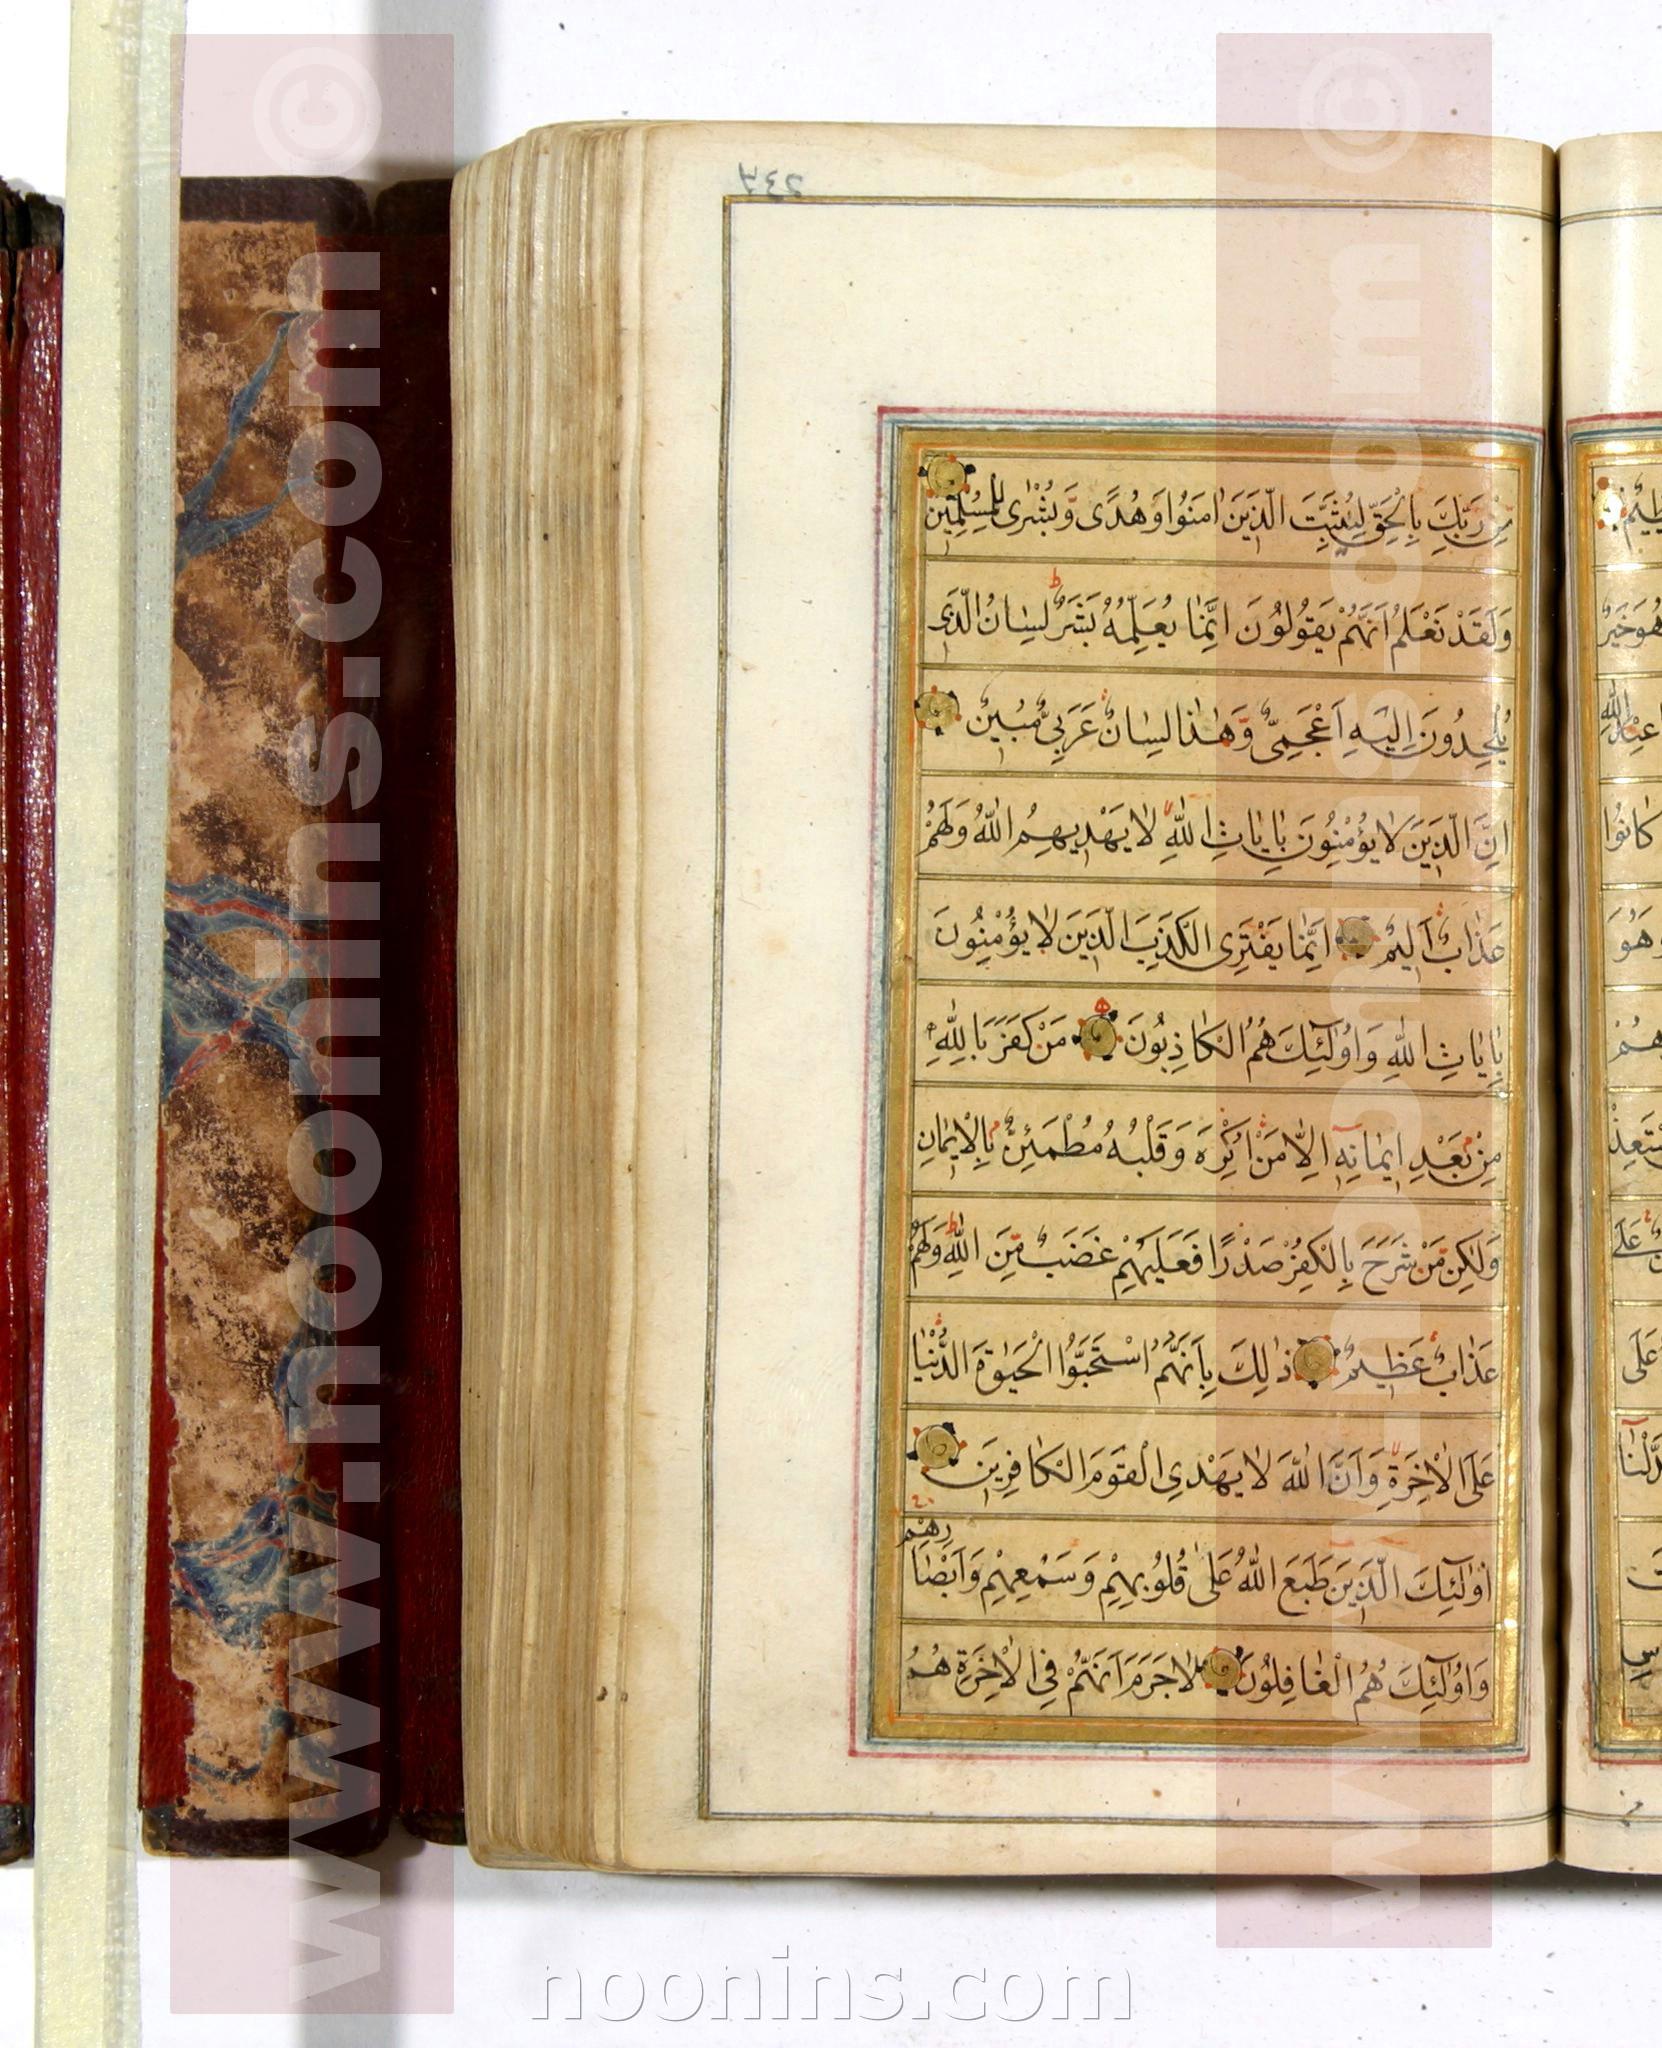 مِنْ رَبِّكَ بِالْحَقِّ لِيُثَبِّتَ الَّذِينَ اٰمَنُوا وَهُدًى وَبُشْرٰى لِلْمُسْلِمِينَ
وَلَقَدْ نَعْلَمُ اَنَّهُمْ يَقُولُونَ اِنَّمٰا يُعَلِّمُهُ بَشَرٌ لِسٰانُ الَّذِى
يُلْحِدُونَ اِلَيْهِ اَعْجَمِىٌّ وَهٰذٰا لِسٰانٌ عَرَبِىٌّ مُبِينٌ
اِنَّ الَّذِينَ لٰا يُؤْمِنُونَ بِاٰيٰاتِ اللّٰهِ لٰا يَهْدِيهِمُ اللّٰهُ وَلَهُمْ
عَذٰابٌ اَلِيمٌ اِنَّمٰا يَفْتَرِى الْكَذِبَ الَّذِينَ لٰا يُؤْمِنُونَ
بِاٰيٰاتِ اللّٰهِ وَاُولٰٓئِكَ هُمُ الْكٰاذِبُونَ مَنْ كَفَرَ بِاللّٰهِ
مِنْ بَعْدِ اِيمٰانِهٖٓ اِلّٰا مَنْ اُكْرِهَ وَقَلْبُهُ مُطْمَئِنٌّ بِالْاِيمٰانِ
وَلٰكِنْ مَنْ شَرَحَ بِالْكُفْرِ صَدْرًا فَعَلَيْهِمْ غَضَبٌ مِنَ اللّٰهِ وَلَهُمْ
عَذٰابٌ عَظِيمٌ ذٰلِكَ بِاَنَّهُمُ اسْتَحَبُّوا الْحَيٰوةَ الدُّنْيٰا
عَلَى الْاٰخِرَةِ وَاَنَّ اللّٰهَ لٰا يَهْدِى الْقَوْمَ الْكٰافِرِينَ
اُولٰٓئِكَ الَّذِينَ طَبَعَ اللّٰهُ عَلٰى قُلُوبِهِمْ وَسَمْعِهِمْ وَاَبْصٰارِهِمْ
وَاُولٰٓئِكَ هُمُ الْغٰافِلُونَ لٰا جَرَمَ اَنَّهُمْ فِى الْاٰخِرَةِ هُمُ
www.noonins.com ©
www.noonins.com ©
noonins.com